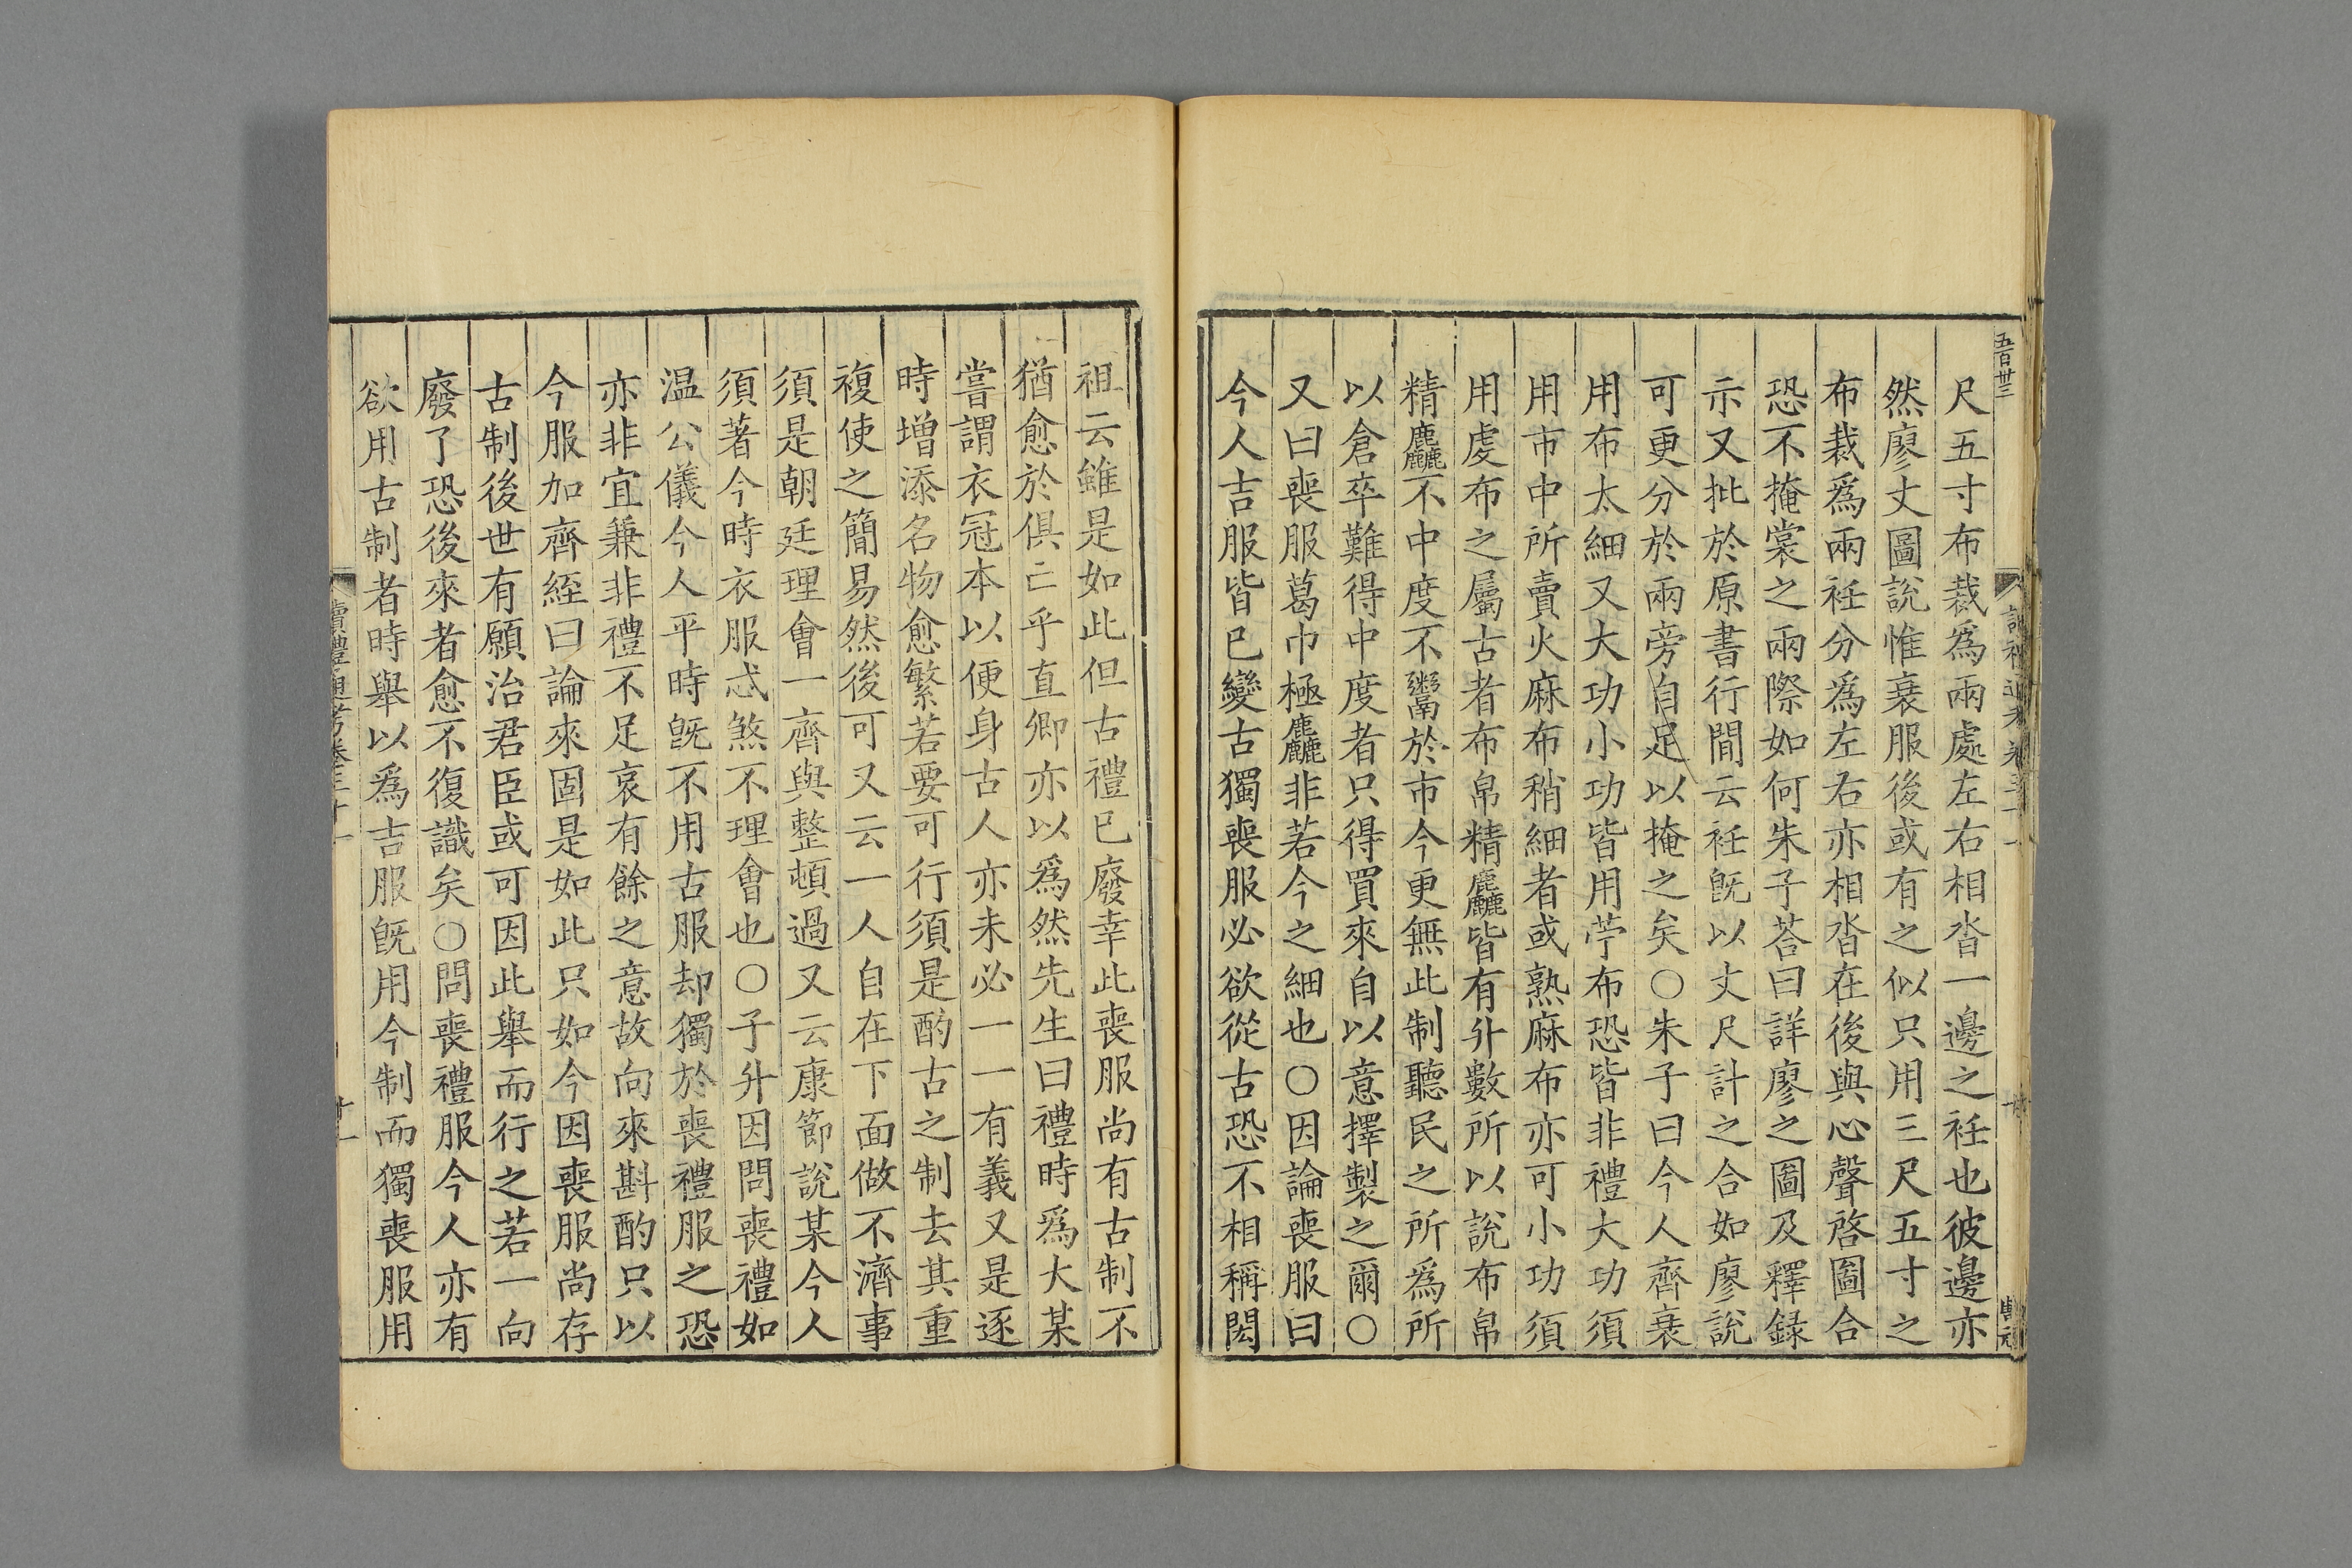 五百卅三
尺五寸布裁爲兩處左右相沓一邊之衽也彼邊亦
然廖丈圖說惟衰服後或有之似只用三尺五寸之
布裁爲兩衽分爲左右亦相沓在後與心聲啓圖合
恐不掩裳之兩際如何朱子荅曰詳廖之圖及釋録
示又批於原書行間云衽旣以丈尺計之合如廖說
可更分於兩旁自足以掩之矣○朱子曰今人齊衰
用布太細又大功小功皆用苧布恐皆非禮大功須
用市中所賣火麻布稍細者或熟麻布亦可小功須
用䖏布之屬古者布帛精麤皆有升數所以說布帛
精麤不中度不鬻於市今更無此制聽民之所爲所
以倉卒難得中度者只得買來自以意擇製之爾○
又曰喪服葛巾極麤非若今之細也○因論喪服曰
今人吉服皆已變古獨喪服必欲從古恐不相稱閎
祖云雖是如此但古禮已廢幸此喪服尚有古制不
猶愈於俱亡乎直卿亦以爲然先生曰禮時爲大某
嘗謂衣冠本以便身古人亦未必一一有義又是逐
時增添名物愈繁若要可行須是酌古之制去其重
複使之簡易然後可又云一人自在下面做不濟事
須是朝廷理會一齊與整頓過又云康節說某今人
須著今時衣服忒煞不理會也○子升因問喪禮如
温公儀今人平時旣不用古服却獨於喪禮服之恐
亦非宜兼非禮不足哀有餘之意故向來斟酌只以
今服加齊絰曰論來固是如此只如今因喪服尚存
古制後世有願治君臣或可因此舉而行之若一向
廢了恐後來者愈不復識矣○問喪禮服今人亦有
欲用古制者時舉以爲吉服旣用今制而獨喪服用
讀禮通考卷三十一
十一